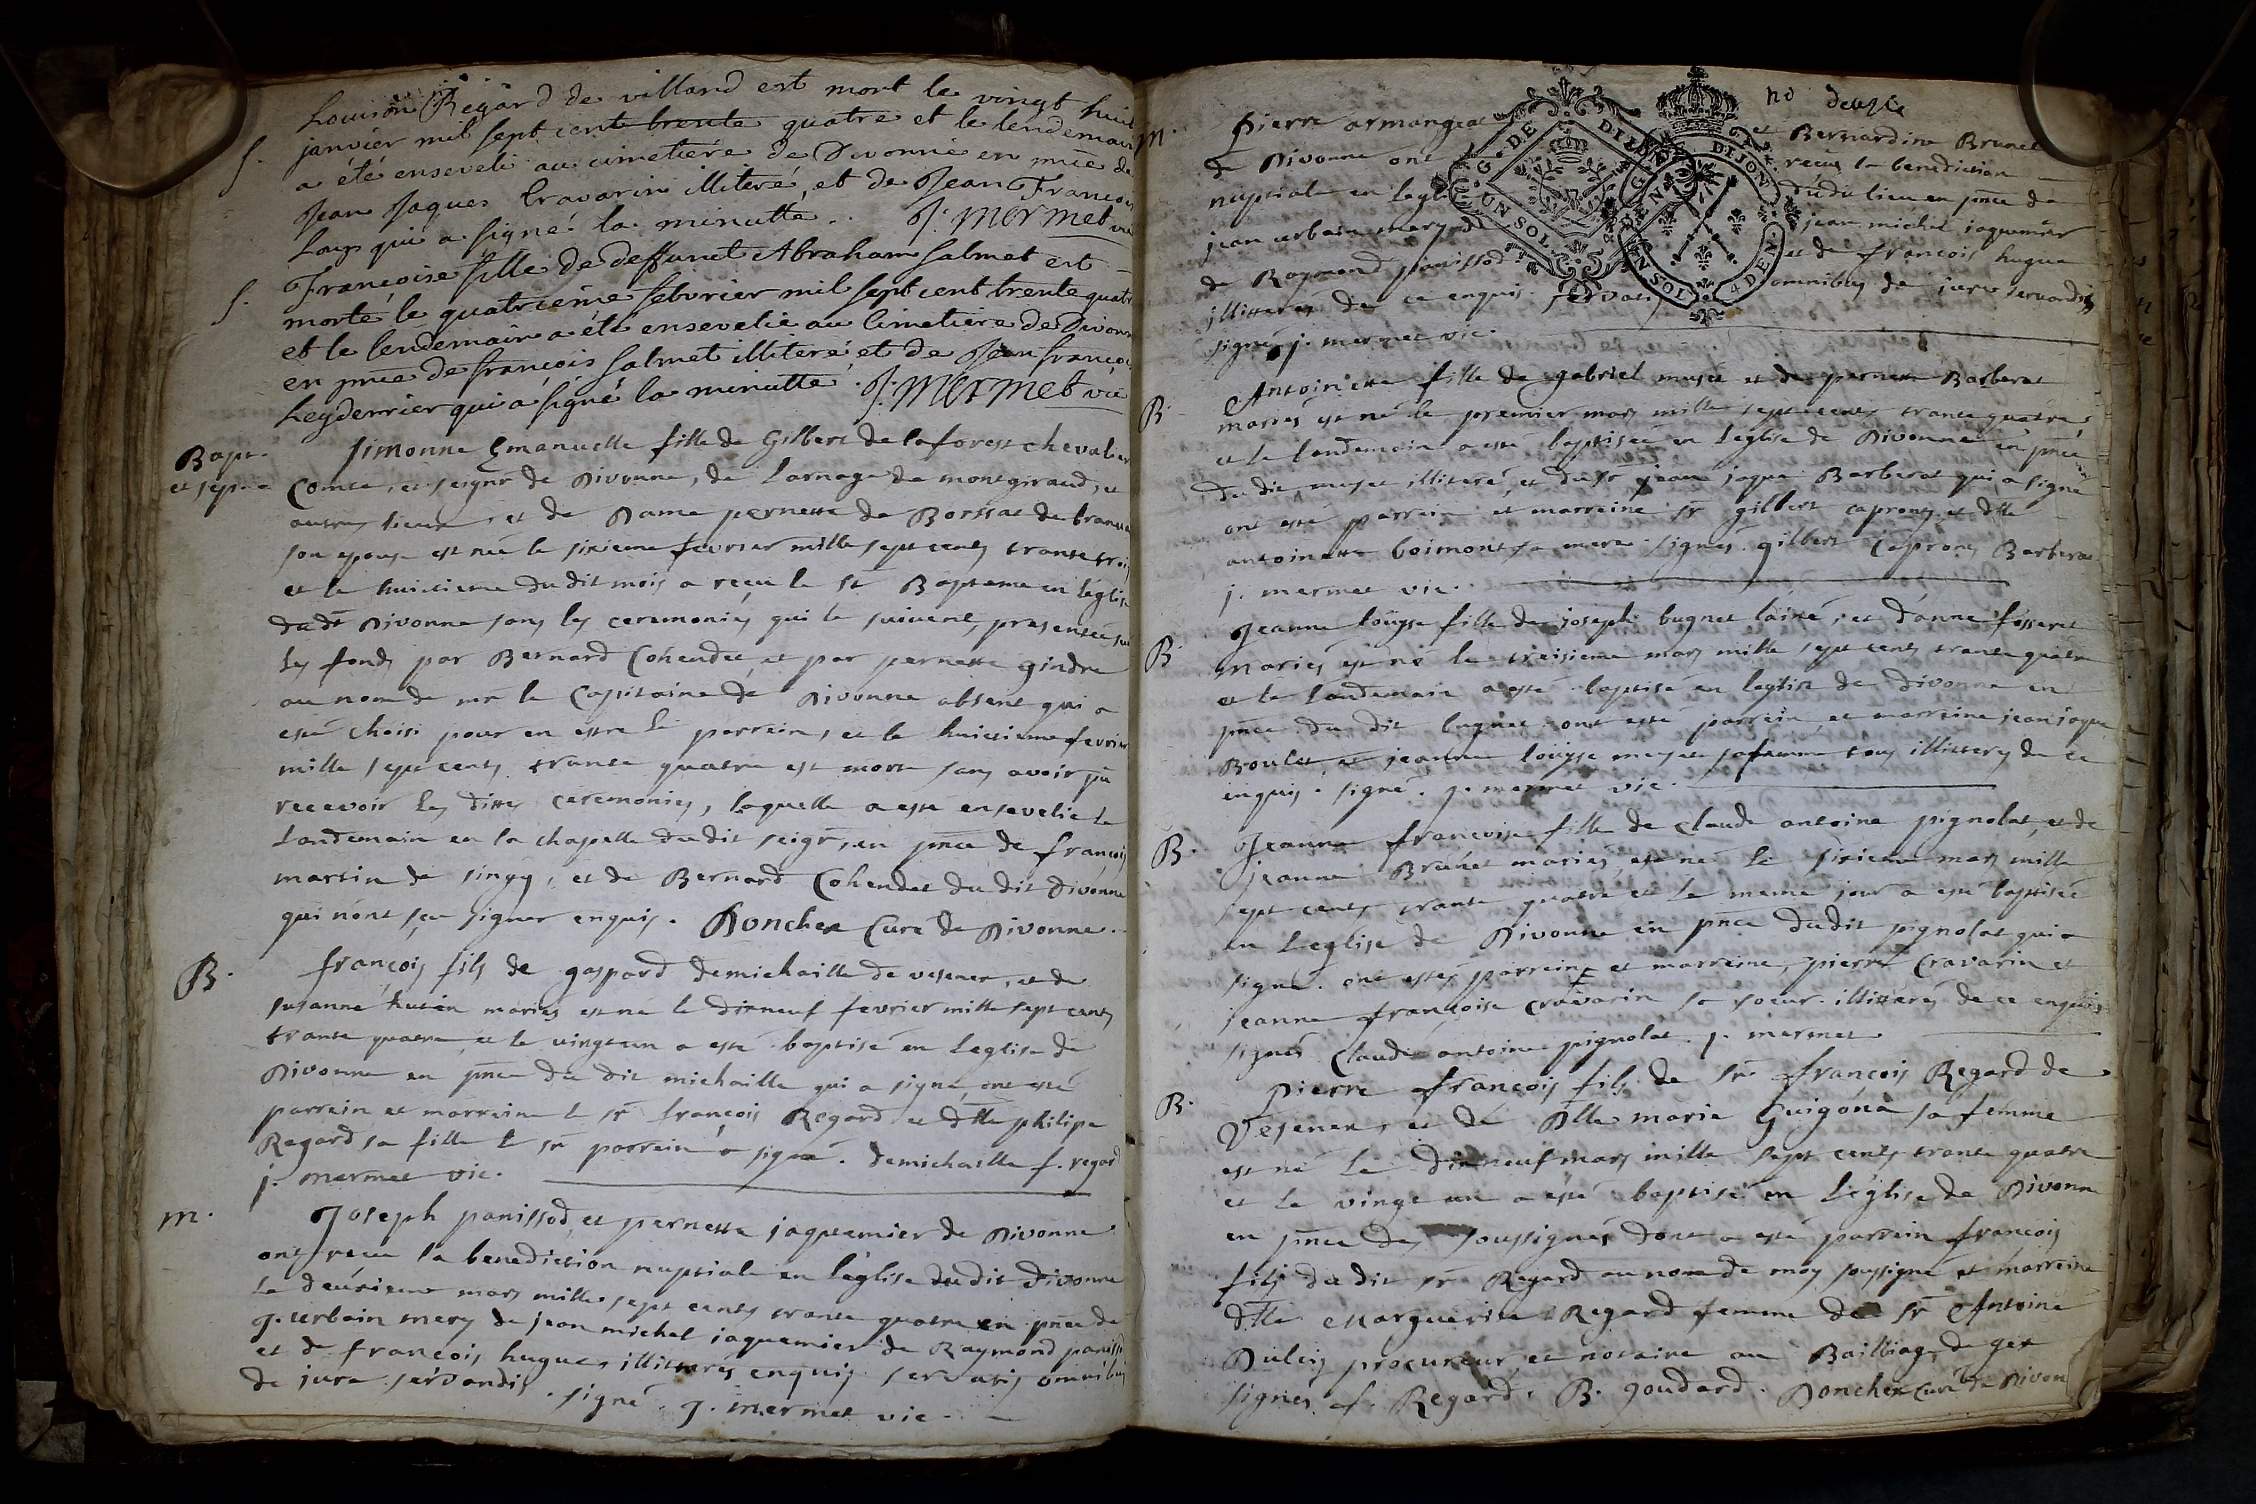 Louison Regard de villard est mort le vingt huit
S. janvier mil sept cent trente quatre et le lendemain
a été enseveli au cimetiére de Divonne en pnce de
Jean Jaques Cravarin illiteré, et de Jean François
Lanz qui a signé la minutte. J: Mermet vic
Francoise fille de deffunct Abraham Salmet est
S. morte le quatriéme febvrier mil sept cent trente quatre
et le lendemain a été ensevelie au cimetiére de Divonne
en pnce de françois Salmet illiteré et de Jean françois
Leyderrier qui a signé la minutte. J: Mermet vic
Bapt. Simonne Emanuelle fille de Gilbert de laforest chevalier
et sep. Comte, et seignr de Divonne, de Larnage de montgiraud, et
autres lieux, et de Dame pernette de Borssat de
son epouse est née le sixieme fevrier mille sept cents trante trois
et le huictieme du dit mois a reçu le st Bapteme en l'église
du dt Divonne sans les ceremonies qui le suivent, presentée sur
les fonds par Bernard Cohendet, et par pernette gindre
au nom de mr le Capitaine de Divonne absent qui a
esté choisi pour en estre le parrein, et le huictieme fevrier
mille sept cents trante quatre est morte sans avoir pû
recevoir les dittes ceremonies, laquelle a esté ensevelie le
landemain en la chapelle du dit seigr, en pnce de françois
martin de singy, et de Bernard Cohendet du dit Divonne
qui n'ont sçu signer enquis. Poncher Curé de Divonne.
B. françois fils de gaspard demichaille de vesenex, et de
susanne hutin mariés est né le dixneuf fevrier mille sept cents
trante quatre, et le vingt un a esté baptisé en Leglise de
Divonne en pnce du dit michaille qui a signé, ont esté
parrein et marreine le sr françois Regard et dlle philipe
Regard sa fille le sr parrein a signé. demichaille f. regard
j. mermet vic.
m. Joseph panissod, et pernette jaquemier de Divonne
ont reçu la benediction nuptiale en l'église du dit Divonne
le deuxieme mars mille sept cents trante quatre en pnce de
J. urbain mery de jean michel jaquemier de Raymond panissod
et de françois hugues illitterés enquis. servatis omnibus
de jure servandis. signé. J. mermet vic.
no deuze
m. Pierre armangeat et Bernardine Brunet
de Divonne ont reçus la benediction
nuptiale en legli dudit lieu en pnce de
jean urbain mery d jean michel jaquemier
de Raymond panissod et de françois hugue
illitterés de ce enquis. servatis omnibus de jure servandis
signé j. mermet vic.
B. Antoinette fille de gabriel musét et de pernette Barberat
mariés est né le premier mars mille sept cents trante quatre
et le landemain a esté baptisée en l'eglise de Divonne en pnce
du dit muset illiteré, et du sr jean jaque Barberat qui a signé
ont esté parrein et marreine sr gilbert caprony et dlle
antoinette boimont sa mere. signés. gilbert Caprony Barberat
j. mermet vic.
B. Jeanne loüyse fille de joseph bugnet lainé, et d'anne fosseret
mariés est né le treisieme mars mille sept cents trante quatre
et le landemain a esté baptisé en leglise de divonne en
pnce du dit bugnet ont esté parrein, et marreine jean jaque
Boulet, et jeanne loüyse meyet sa femme tous illitterés de ce
enquis. signé. J. mermet vic.
B. Jeanne françoise fille de claude antoine pignolat, et de
jeanne Brunet mariés, est né le sixieme mars mille
sept cents trante quatre et le meme jour a esté baptisée
en l'eglise de Divonne en pnce du dit pignolat qui a
signé. ont estés parrein, et marreine, pierre Cravarin et
jeanne françoise cravarin sa soeur. illitterés de ce enquis
signés Claude antoine pignolat. J. mermet.
B. Pierre françois fils de sr françois Regard de
Vesenex, et de dlle marie Guigona sa femme
est né le dixneuf mars mille sept cents trante quatre
et le vingt un a esté baptisé en l'église de Divonne
en pnce des soussignés dont a esté parrein françois
fils du dit sr Regard au nom de moy soussigné et marreine
dlle Marguerite Regard femme de sr Antoine
Dulcis procureur, et notaire au Bailliage de gex
signés f. Regard. B. goudard. Poncher Curé de Divon
G. DE DIJON UN SOL
G. DE DIJON UN SOL 4 DEN.